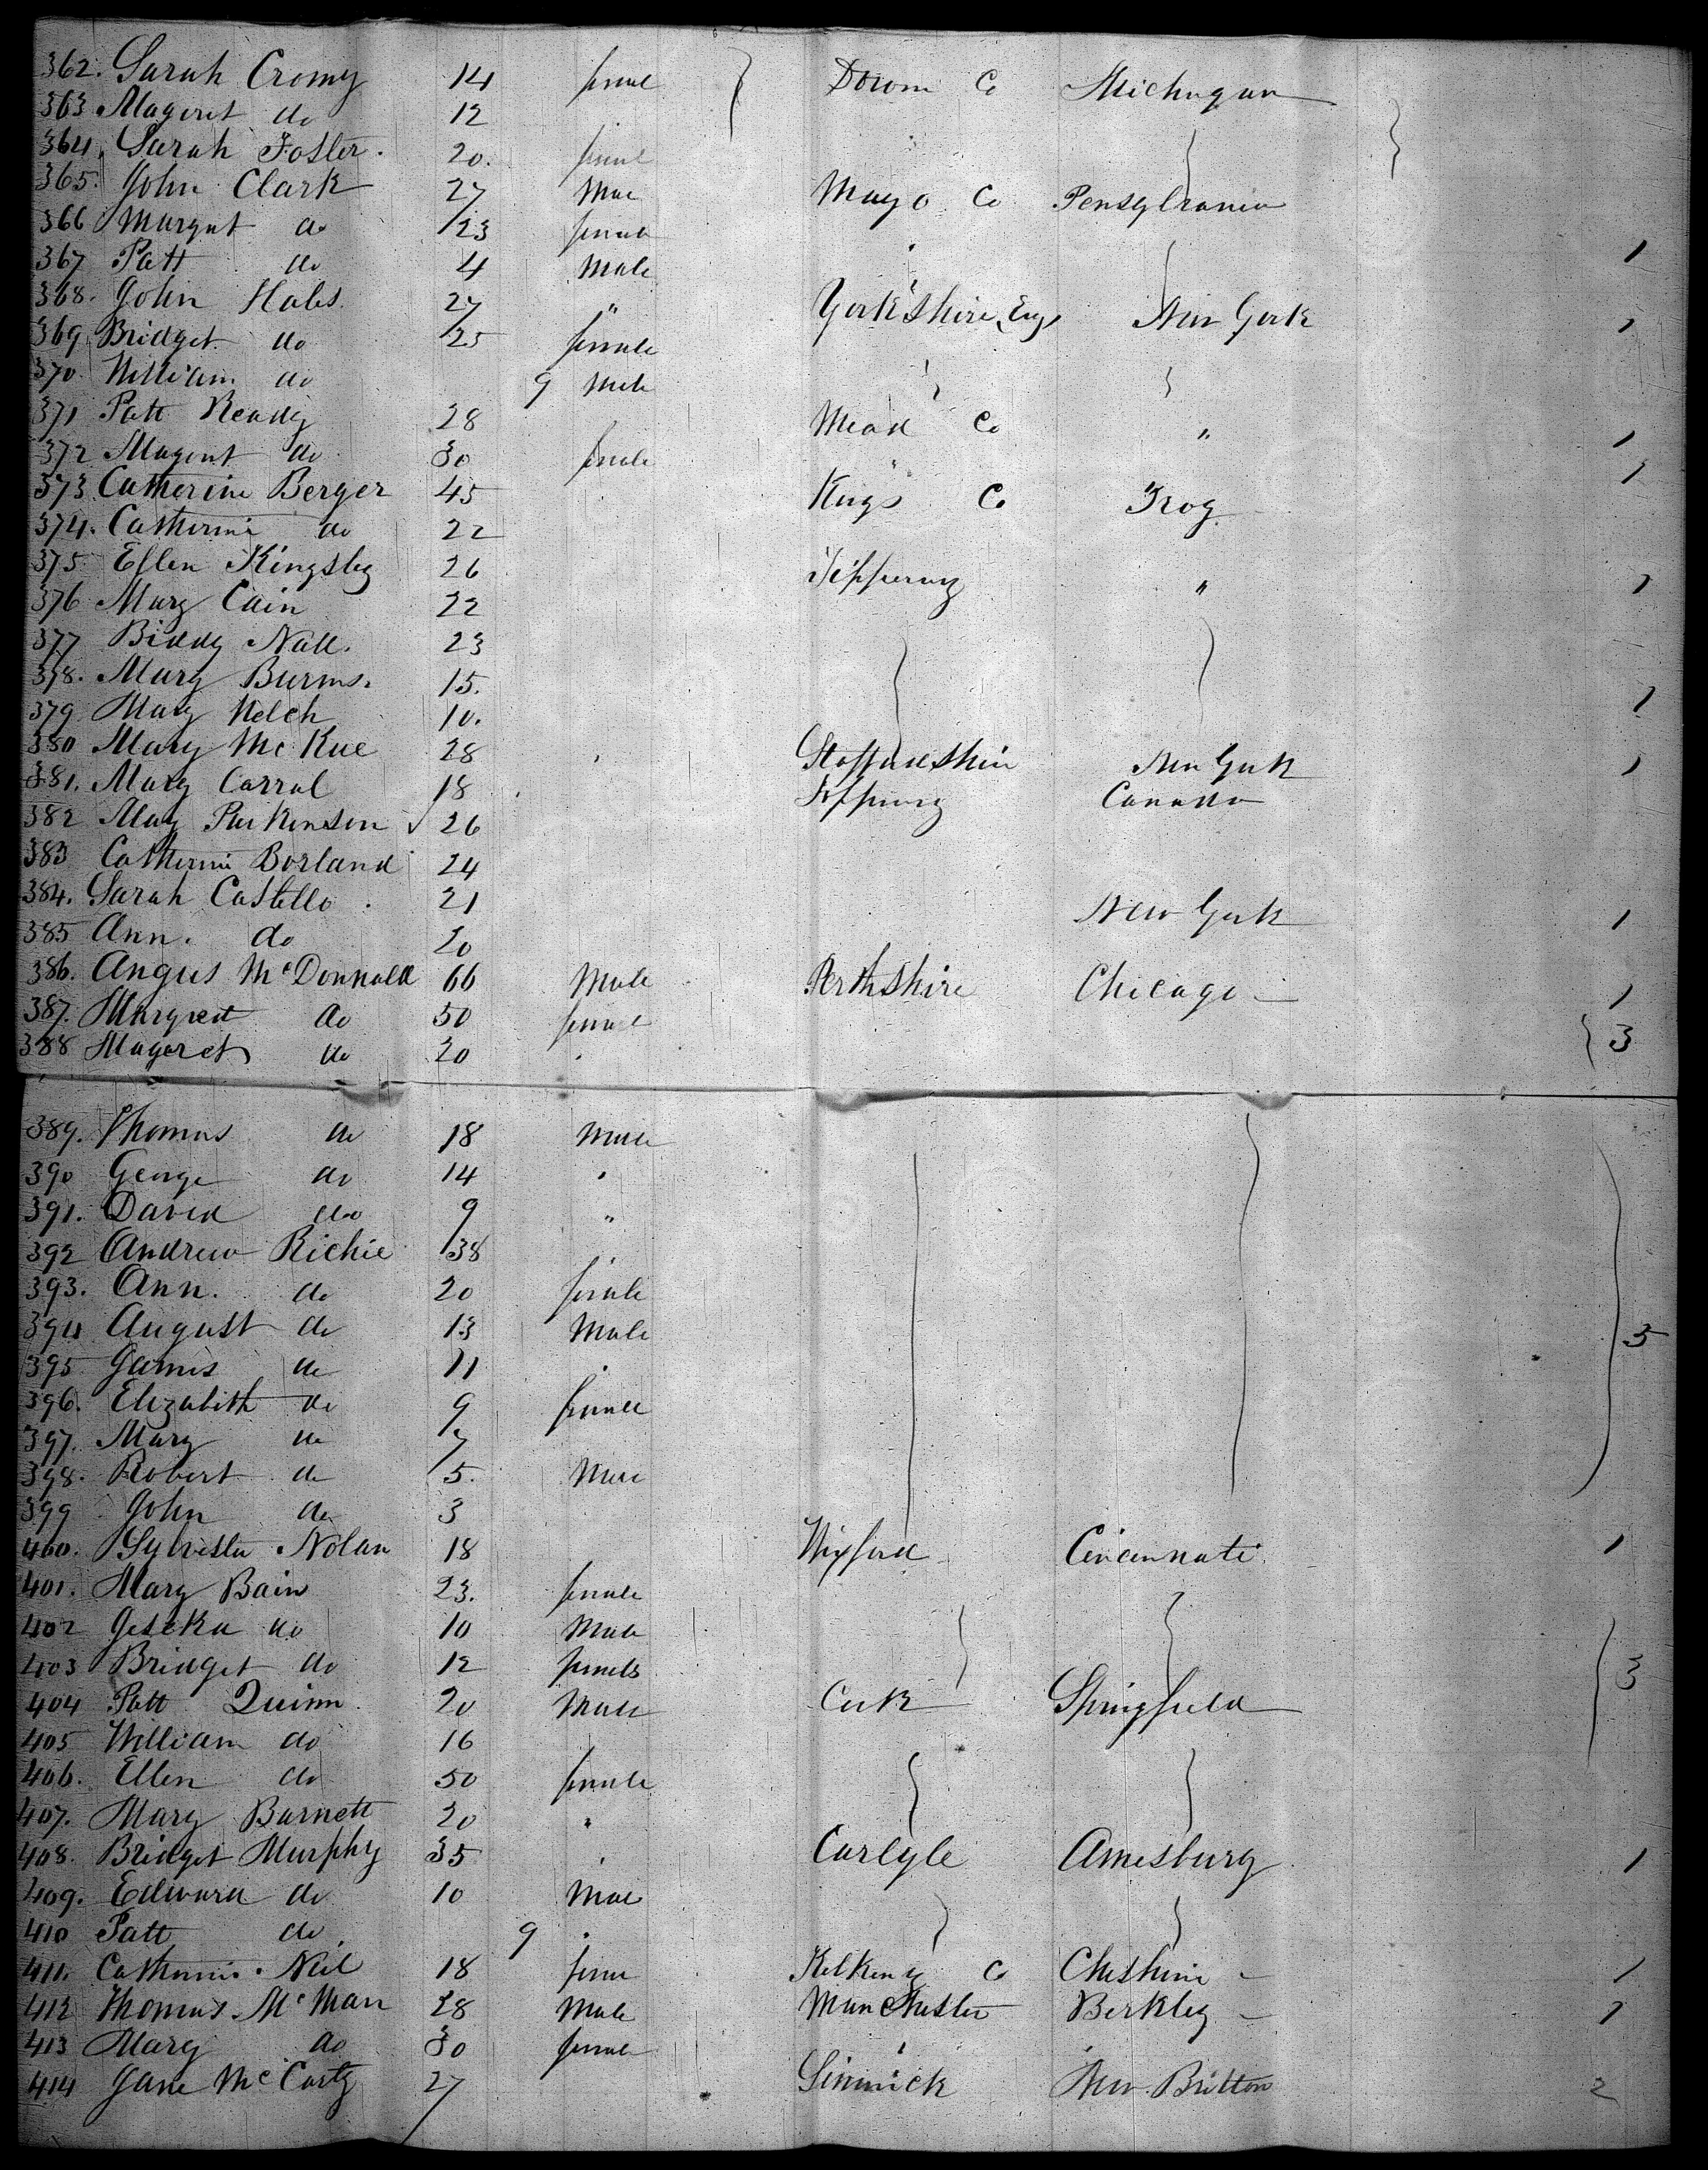 362. Sarah Cromy 14 female Down Co Michugan
363 Mageret do 12
364. Sarah Foster. 20. female
365. John Clark 27 Male Mayo Co Pensylvania
366 Margret do 23 female
367 Patt do 4 Male 1
368. John Hales 27 " Yorkshire, Eng New York 1
369 Bridget do 25 female
370 William do 9 Male
371 Patt Ready 28 Mead Co " 1
372 Magaret do 30 female 1
373. Catherine Berger 45 Kings Co Troy
374. Catherine do 22
375 Ellen Kingsley 26 Tipperary " 1
376 Mary Cain 22
377 Biddy Nall. 23
378. Mary Burns. 15. 1
379 Mary Welch 10.
380 Mary McKue 28 Staffordshire New York 1
381. Mary Carral 18 Tipperary Canada
382 May Parkinson 26
383 Catherine Borland 24
384. Sarah Castello 21 New York 1
385 Ann. do 20
386. Angus McDonnald 66 Male Perthshire Chicago 1
387. Margret do 50 female
388 Mageret do 20 3
389. Thomas do 18 Male
390 George do 14
391. David do 9 "
392 Andrew Richie 38
393. Ann. do 20 female
394 August do 13 Male 5
395 James do 11
396. Elizabeth do 9 female
397. Mary do 7
398. Robert do 5. Male
399 John do 3
400. Sylvester Nolan 18 Wexford Cincinnati 1
401. Mary Bain 23. female
402 do 10 Male
403 Bridget do 12 female 3
404 Patt Quinn 20 Male Cork Springfield
405 William do 16
406. Ellen do 50 female
407. Mary Barnett 20 "
408. Bridget Murphy 35 Carlyle Amesbury 1
409. Edward do 10 Male
410 Patt do 9
411. Catherine Neil 18 female Kilkeny Co Cheshire 1
412 Thomas McMan 28 Male Manchester Berkley 1
413 Mary do 30 female
414 Jane McCarty 27 Limrick New Britton 2